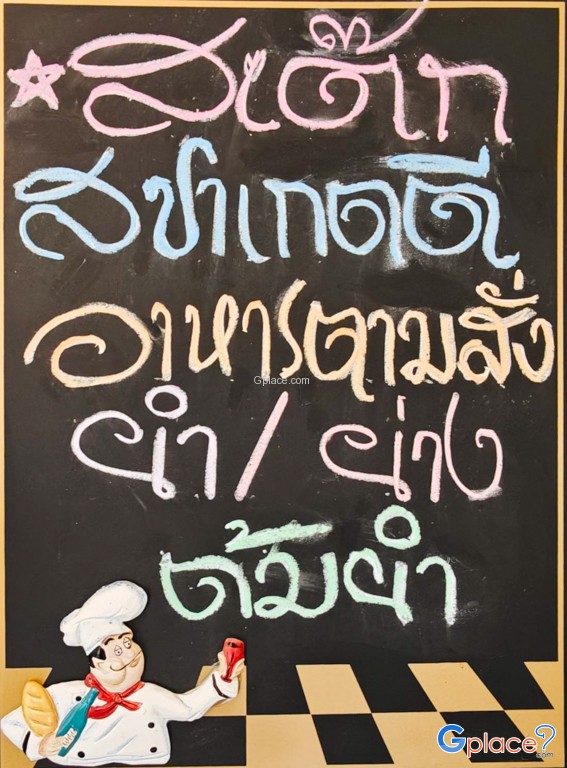 สเต๊ก
สปาเกตตี
อาหารตามสั่ง
ยำ / ย่าง
ต้มยำ
Gplace.com
Gplace?.com